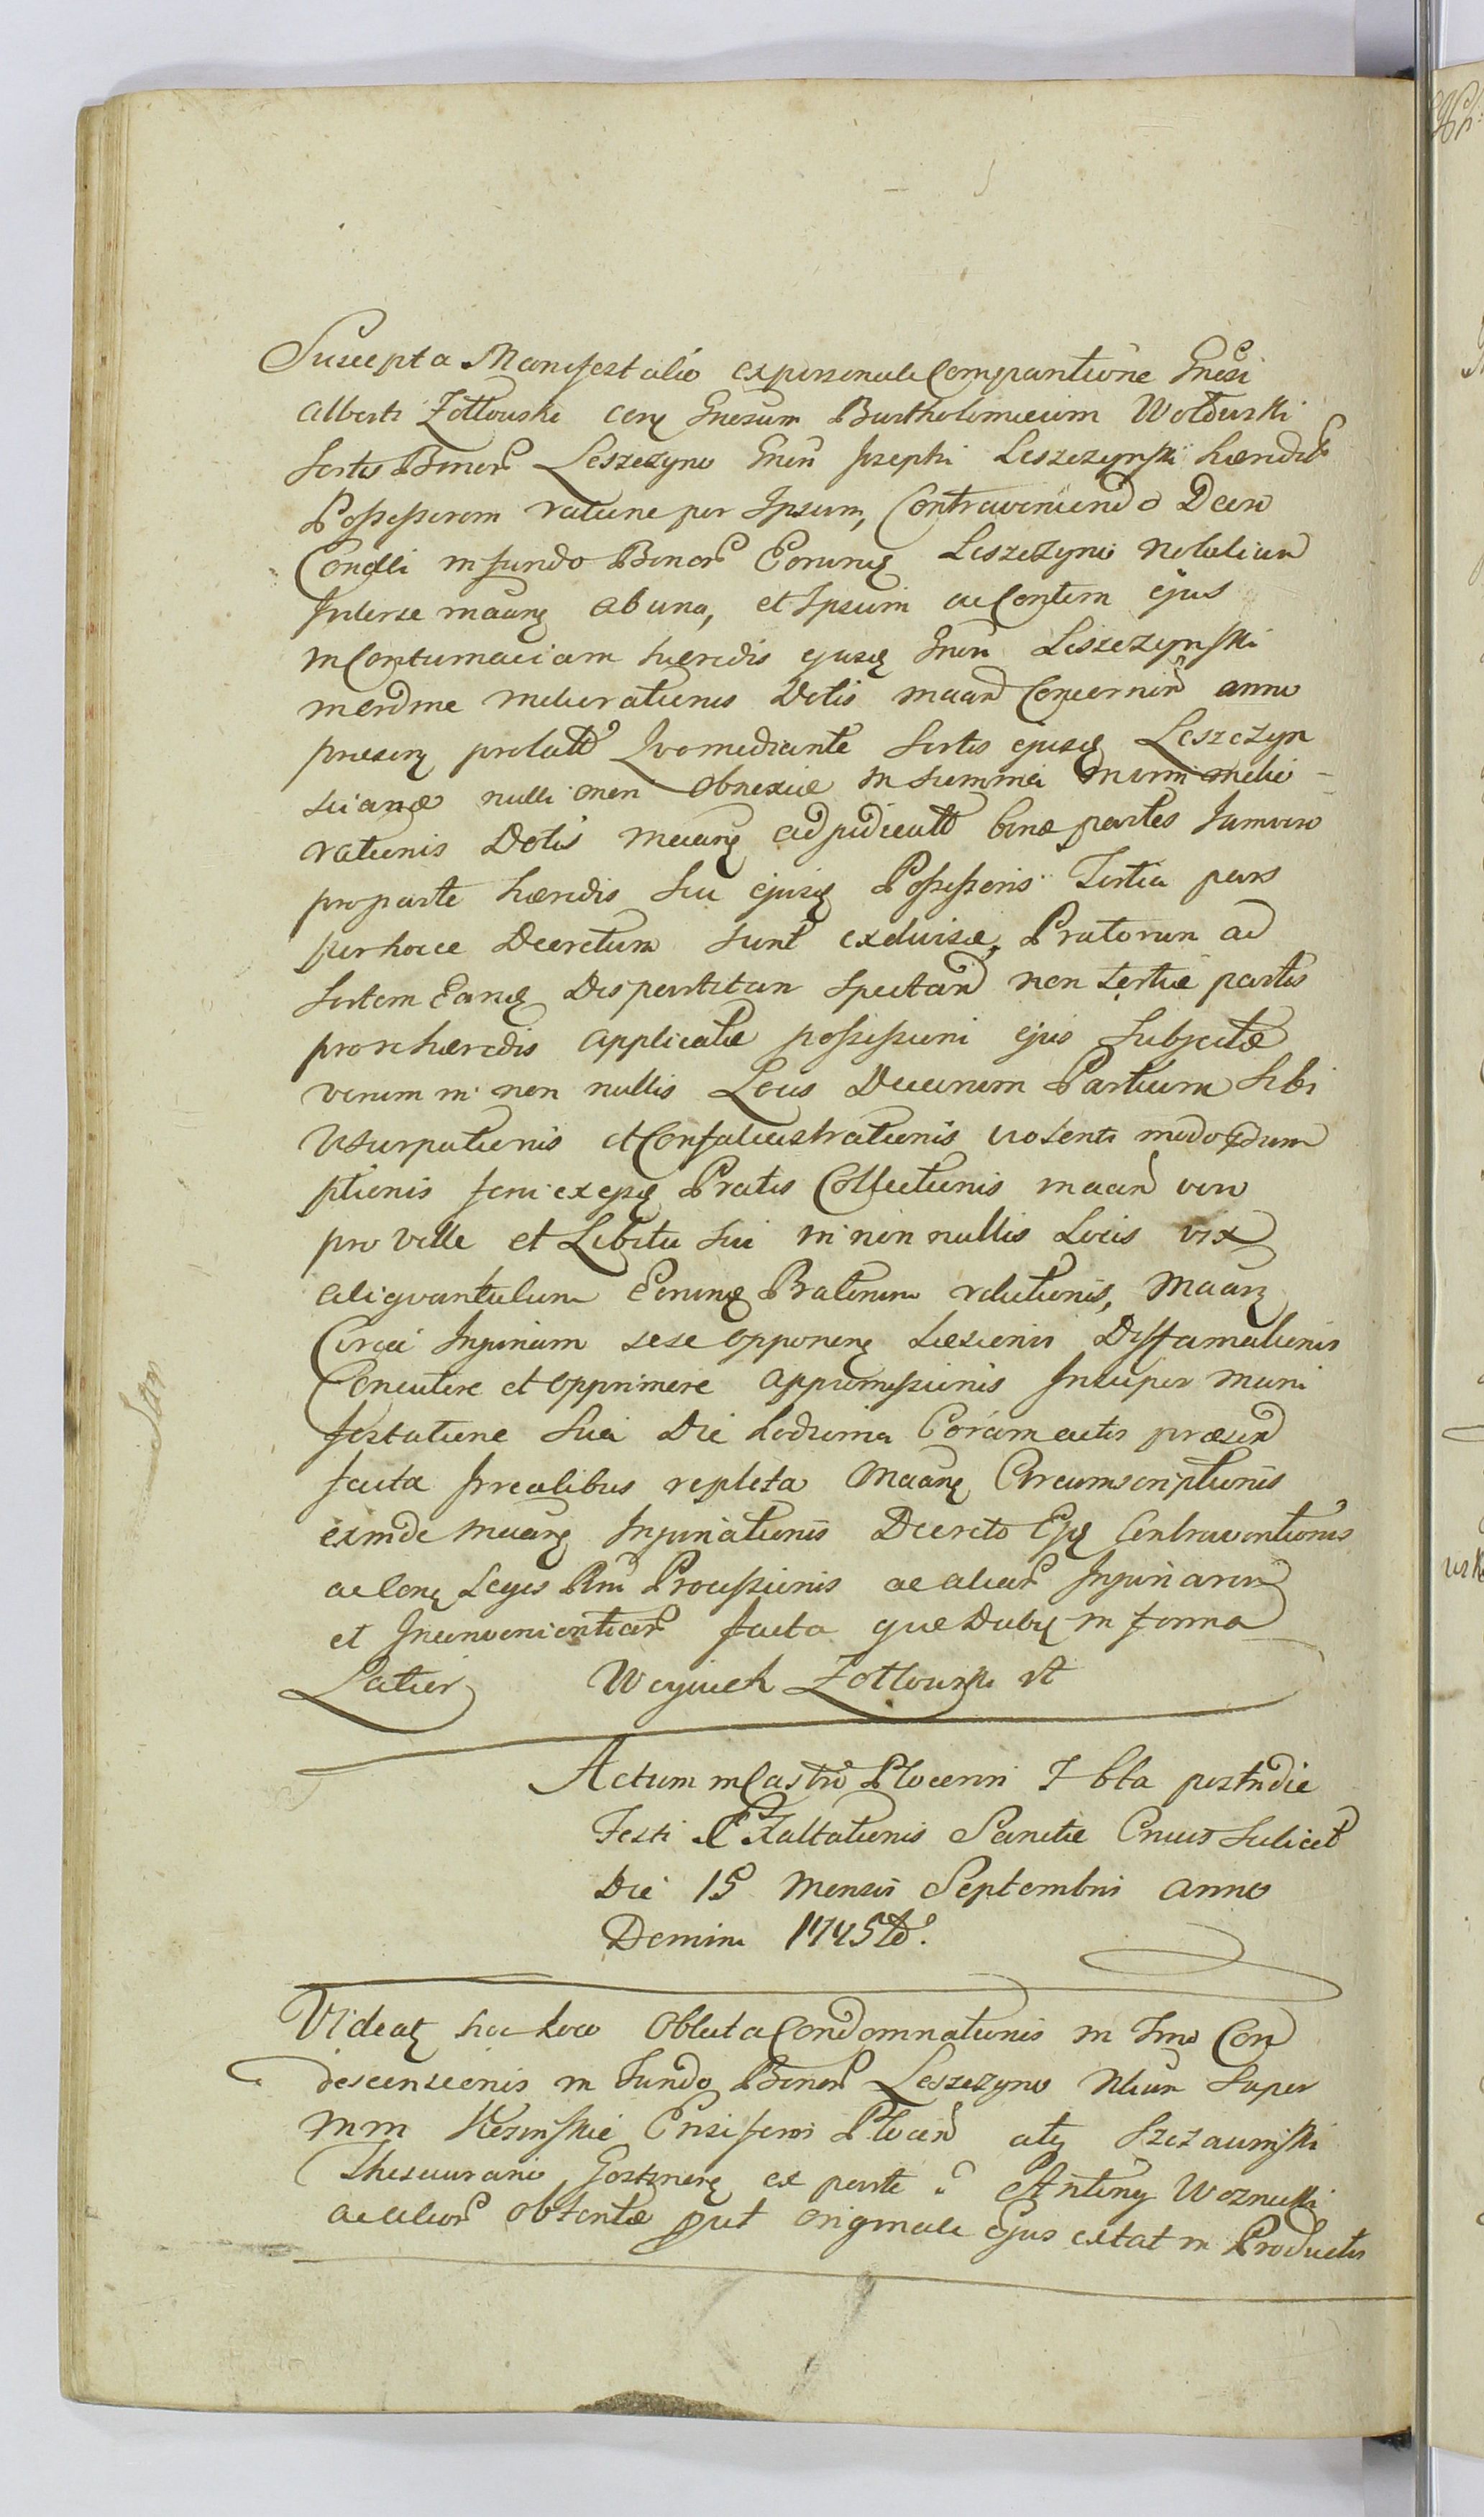 Suscepta Manifestatio ex personali Comparitione Gnesi
Alberti Zottowski con Gnesum Bartholomeum Woldurski
Sortis Bonor Leszczyno Gnen Josephi Leszczynski hæredib
Possessorem ratione per Ipsum, Contraveniendo Decro
Condli in fundo Bonor Eorunq Leszczyno nobilium
Interse maanq ab una, et Ipsum ac Contem ejus
in Contumaciam hæredis ejusq Gnen Leszczynski
meliorationis Dotis maand Concernind anno
præsen prolatto Quo mediante Sortis ejusq Leszczyn
scianæ nulli onen obnexiæ in summa melio-
rationis Dotis maanq adjudicatt binæ partes Jamvero
pro parte hæredis Seu ejusq Possessoris Tertia pars
per hocce Decretum sunt exdivisæ, Pratorum ad
Sortem Eanq Dispertitan Spectand non tertiæ partis
pro re hæredis applicatæ possessioni ejus Subjectæ
verum in non nullis Locis Duarum Partium Sibi
Usurpationis et Confalcastrationis violenti modo
ptionis feni ex Pratis Collectionis maand vero
pro velle et Libitu Sui in non nullis Locis vix
aliqvantulum Eorunq Pratorum relictionis, Maanq
Circa Injuriam sese opponenq Læsionis Diffamationis
Concutere et opprimere appromissionis Insuper mani
festatione Sua Die hodierna Coram actis præsen
facta Irrealibus repleta Maanq Circumscriptionis
exinde maanq Injuriationis Decreto Ejq Contraventionis
ac Conq Leges Rni Processionis ac aliar Injuriarum
et Inconvenientiar facta que Dabq in forma
Latior Woyciech Zottowski
Actum in Castro Plocen Fbta postridie
Festi Exaltationis Sanctæ Crucis Scilicet
Die 15 Mensis Septembris Anno
Domini 1745to.
Videatq hoc loco Oblata Condemnationis in Tmo Con
descensionis in Fundo Bonor Leszczyno Nlium Super
Ensifero Plocen atq
Thesaurario Gostinenq ex parte Antonij Woznicki
ac alior obtentæ put originale Ejus extat in Productis